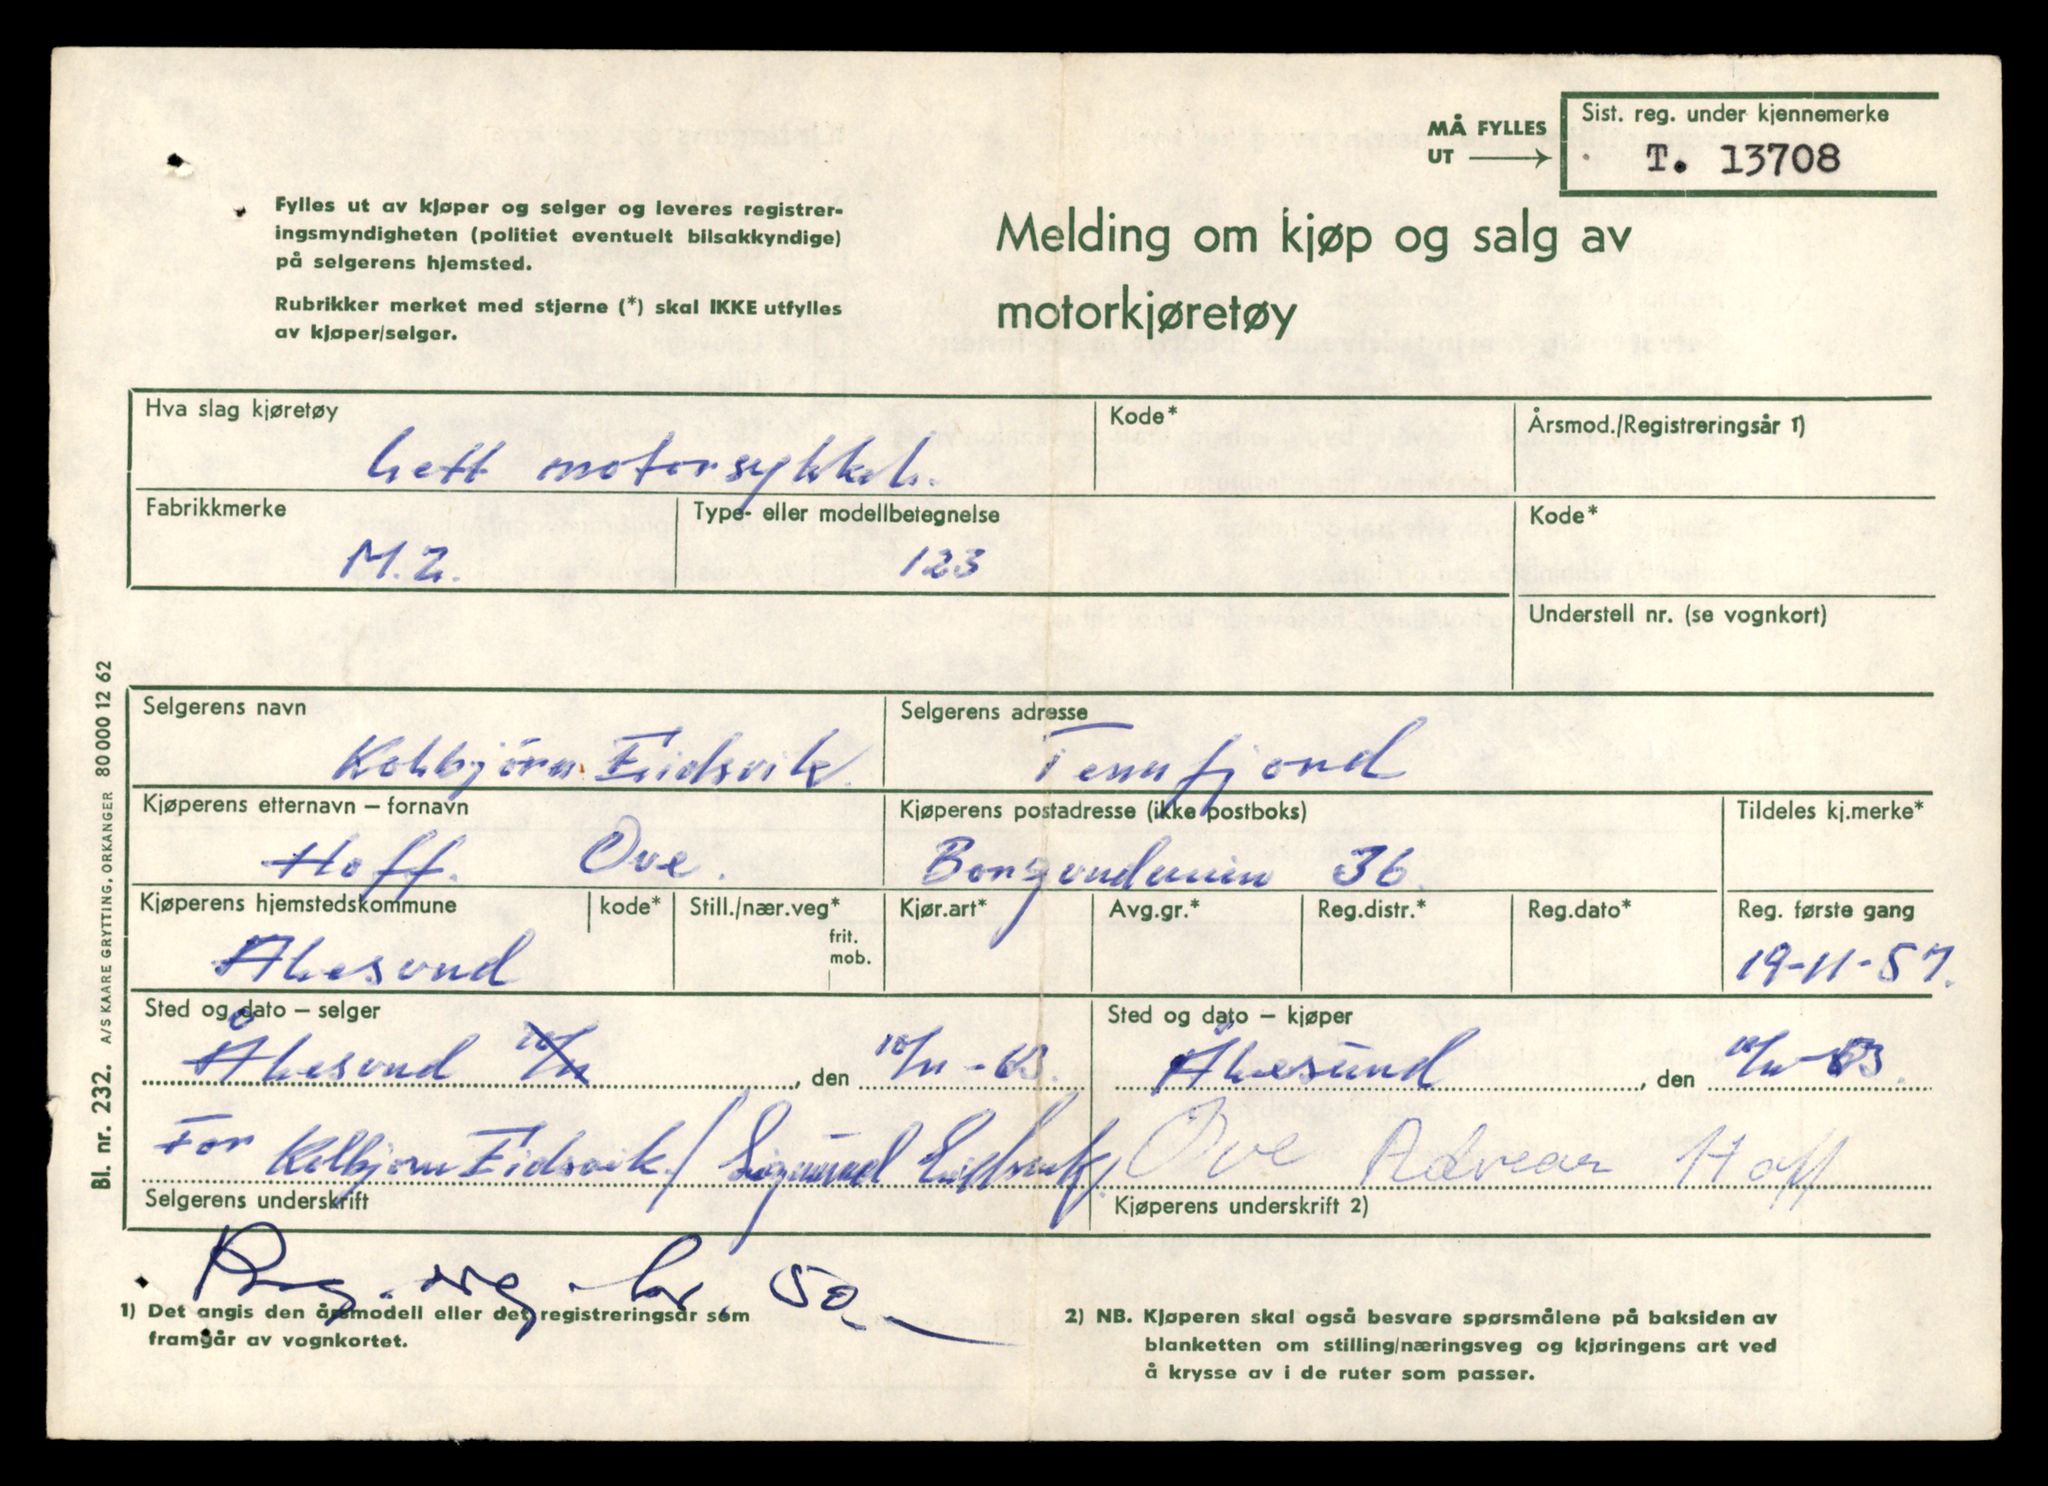 MÅ FYLLES
UT →
Sist. reg. under kjennemerke
T. 13708
Fylles ut av kjøper og selger og leveres registrer-
ingsmyndigheten (politiet eventuelt bilsakkyndige)
på selgerens hjemsted.
Rubrikker merket med stjerne (*) skal IKKE utfylles
av kjøper/selger.
Melding om kjøp og salg av
motorkjøretøy
Hva slag kjøretøy
Lett motorsykkel.
Kode*
Årsmod./Registreringsår 1)
Fabrikkmerke
M.Z.
Type- eller modellbetegnelse
123
Kode*
Understell nr. (se vognkort)
Selgerens navn
Kolbjörn Eidsvik
Selgerens adresse
Tennfjord
Kjøperens etternavn – fornavn
Hoff. Ove.
Kjøperens postadresse (ikke postboks)
36.
Tildeles kj.merke*
Kjøperens hjemstedskommune
Ålesund
kode*
Still./nær.veg*
frit.
mob.
Kjør.art*
Avg.gr.*
Reg.distr.*
Reg.dato*
Reg. første gang
19-11-57.
Sted og dato – selger
Ålesund 10/11, den 10/11-63.
Sted og dato – kjøper
Ålesund, den 10/11-63.
For Kolbjørn Eidsvik / Sigmund Eidsvik.
Selgerens underskrift
Ove Hoff
Kjøperens underskrift 2)
Reg. avg. kr. 50,-
1) Det angis den årsmodell eller det registreringsår som
framgår av vognkortet.
2) NB. Kjøperen skal også besvare spørsmålene på baksiden av
blanketten om stilling/næringsveg og kjøringens art ved
å krysse av i de ruter som passer.
Bl. nr. 232. A/S KAARE GRYTTING, ORKANGER 80 000 12 62